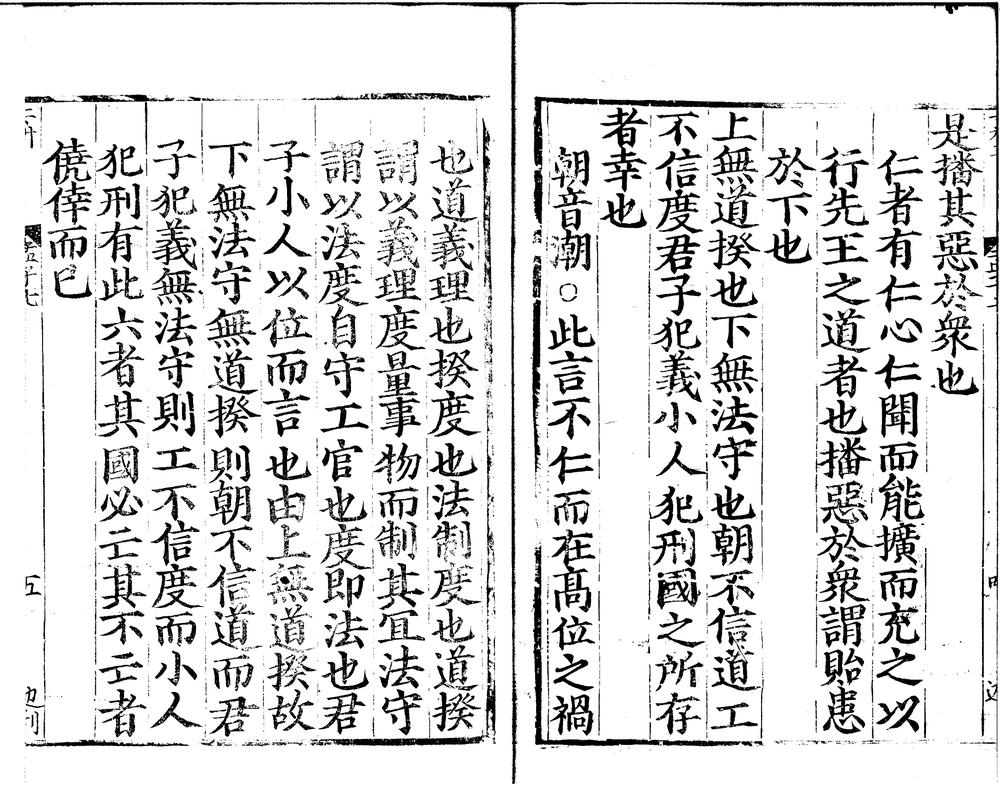 是播其惡於衆也
仁者有仁心仁聞而能擴而充之以
行先王之道者也播惡於衆謂貽患
於下也
上無道揆也下無法守也朝不信道工
不信度君子犯義小人犯刑國之所存
者幸也
朝音潮○此言不仁而在高位之禍
也道義理也揆度也法制度也道揆
謂以義理度量事物而制其宜法守
謂以法度自守工官也度即法也君
子小人以位而言也由上無道揆故
下無法守無道揆則朝不信道而君
子犯義無法守則工不信度而小人
犯刑有此六者其國必亡其不亡者
僥倖而已
孟子七
五